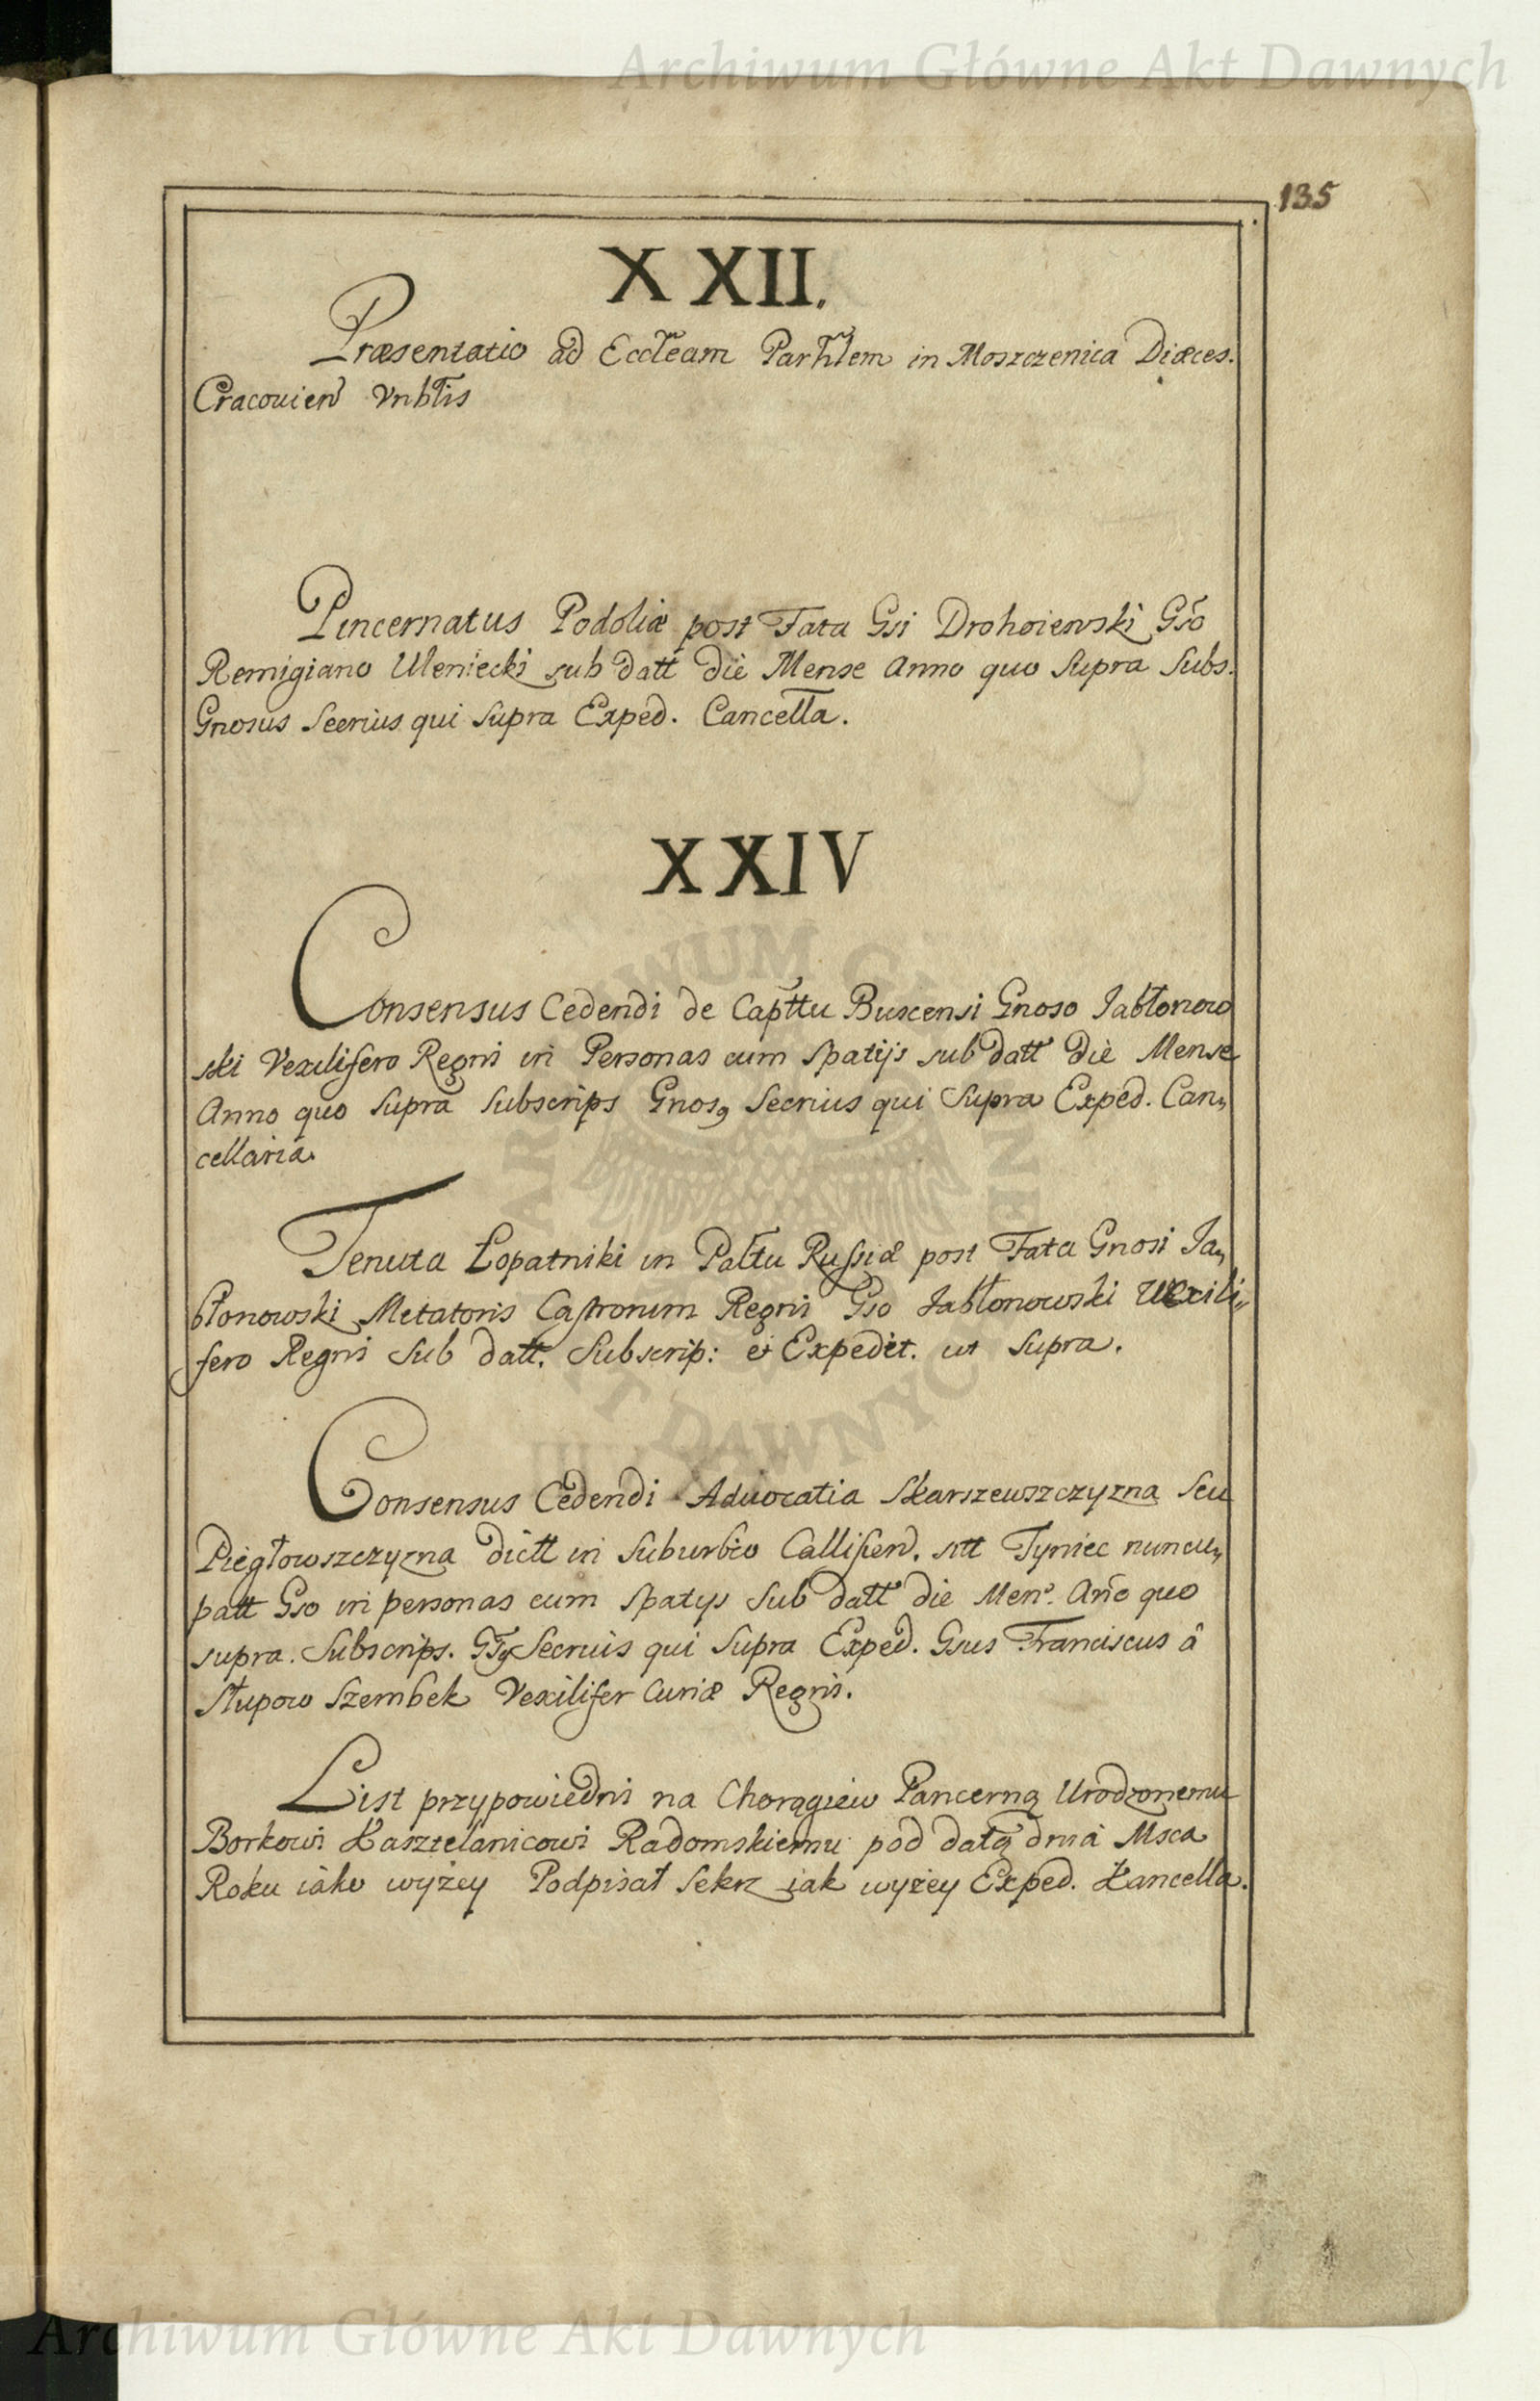 Archiwum Główne Akt Dawnych
135
XXII.
Præsentatio ad Eccleam Parhlem in Moszczenica Diæces.
Cracouien Vnbtis
Pincernatus Podoliæ post Fata Gsi Drohoiewski Gso
Remigiano Uleniecki sub datt die Mense Anno quo Supra Subs.
Gnosus Secrius qui supra Exped. Cancella.
XXIV
Consensus Cedendi de Capttu Buscensi Gnoso Jabłonow
ski Vexilifero Regni in Personas cum spatijs sub datt die Mense
Anno quo supra Subscrips Gnosg Secrius qui Supra Exped. Can„
cellaria.
Tenuta Łopatniki in Paltu Russiæ post Fata Gnosi Ja„
błonowski Metatoris Castrorum Regni Gso Jabłonowski Wexili„
fero Regni Sub datt. Subscrip: et Expedit. ut Supra.
Consensus Cedendi Aduocatia Skarszewszczyzna Seu
Piegłowszczyzna dictt in Suburbio Callisien. sitt Tyniec nuncu„
patt Gso in personas cum spatys Sub datt die Men. Año quo
supra. Subscrips. Secrius qui Supra Exped. Gsus Franciscus â
Słupow Szembek Vexilifer Curiæ Regni.
List przypowiedni na Chorągiew Pancerną Urodzonemu
Borkowi Kasztelanicowi Radomskiemu pod datą dnia Msca
Roku iako wyżey Podpisał Sekrz iak wyżey Exped. Kancella.
Archiwum Główne Akt Dawnych